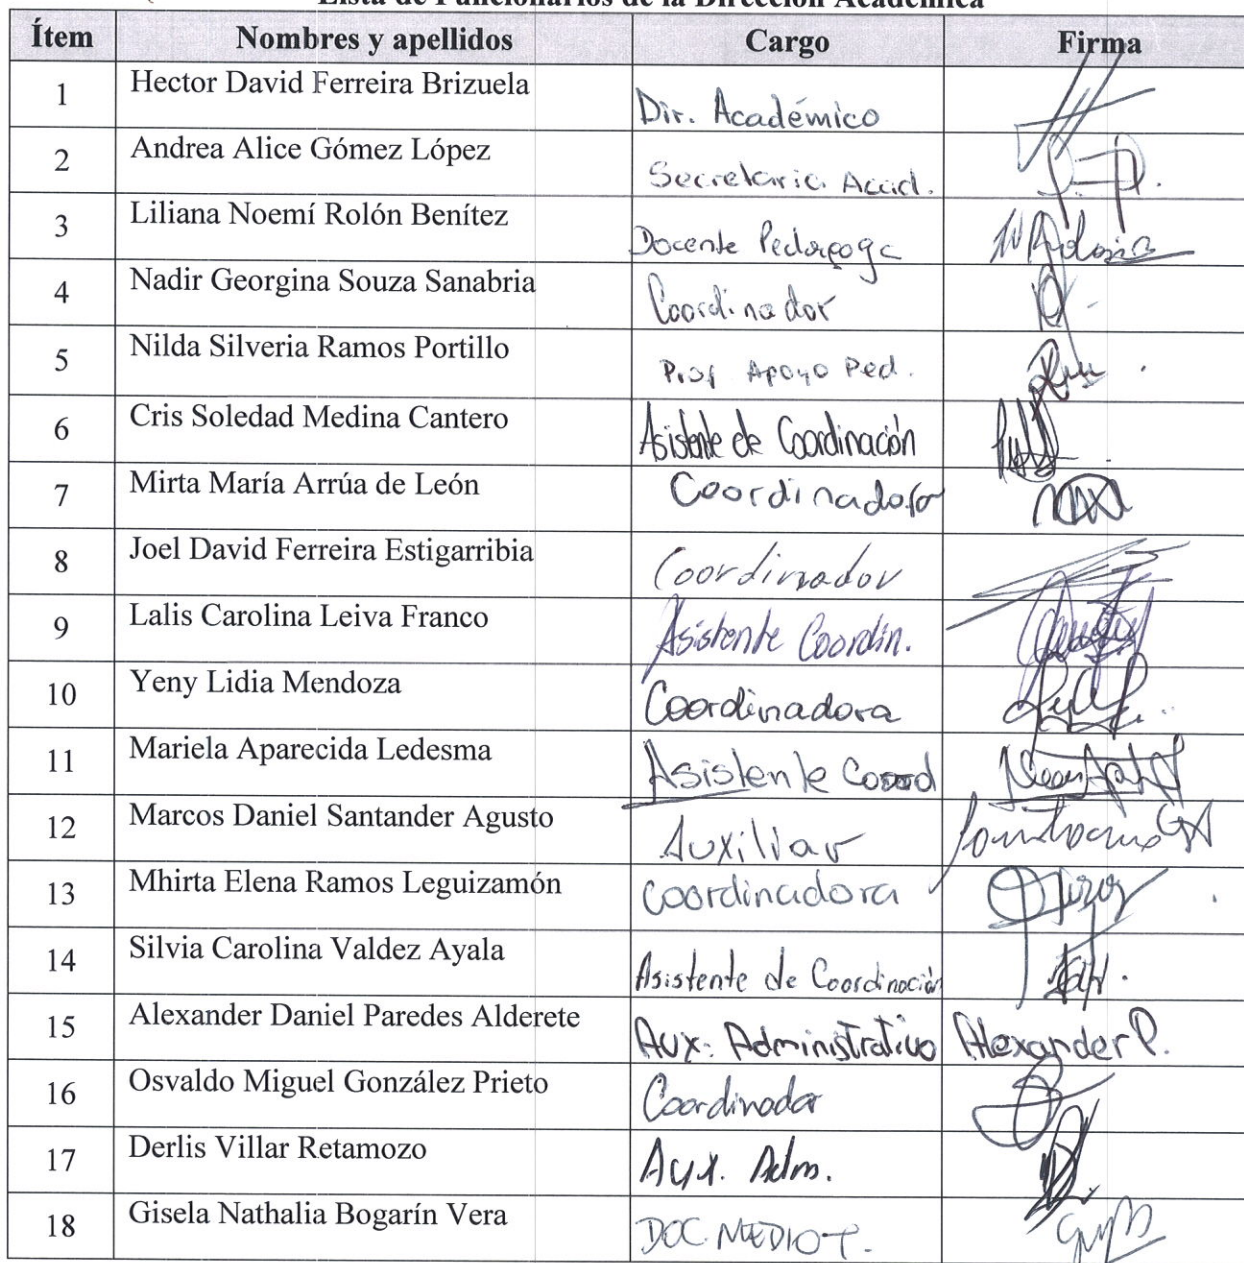 Lista de Funcionarios de la Dirección Académica
Ítem Nombres y apellidos Cargo Firma
1 Hector David Ferreira Brizuela Dir. Académico
2 Andrea Alice Gómez López Secretaria Acad.
3 Liliana Noemí Rolón Benítez Docente Pedagoga
4 Nadir Georgina Souza Sanabria Coordinador
5 Nilda Silveria Ramos Portillo Prof Apoyo Ped.
6 Cris Soledad Medina Cantero Asistente de Coordinación
7 Mirta María Arrúa de León Coordinadora
8 Joel David Ferreira Estigarribia Coordinador
9 Lalis Carolina Leiva Franco Asistente Coordin.
10 Yeny Lidia Mendoza Coordinadora
11 Mariela Aparecida Ledesma Asistente Coord
12 Marcos Daniel Santander Agusto Auxiliar
13 Mhirta Elena Ramos Leguizamón Coordinadora
14 Silvia Carolina Valdez Ayala Asistente de Coordinación
15 Alexander Daniel Paredes Alderete Aux. Administrativo Alexander P.
16 Osvaldo Miguel González Prieto Coordinador
17 Derlis Villar Retamozo Aux. Adm.
18 Gisela Nathalia Bogarín Vera DOC. MEDIO T.